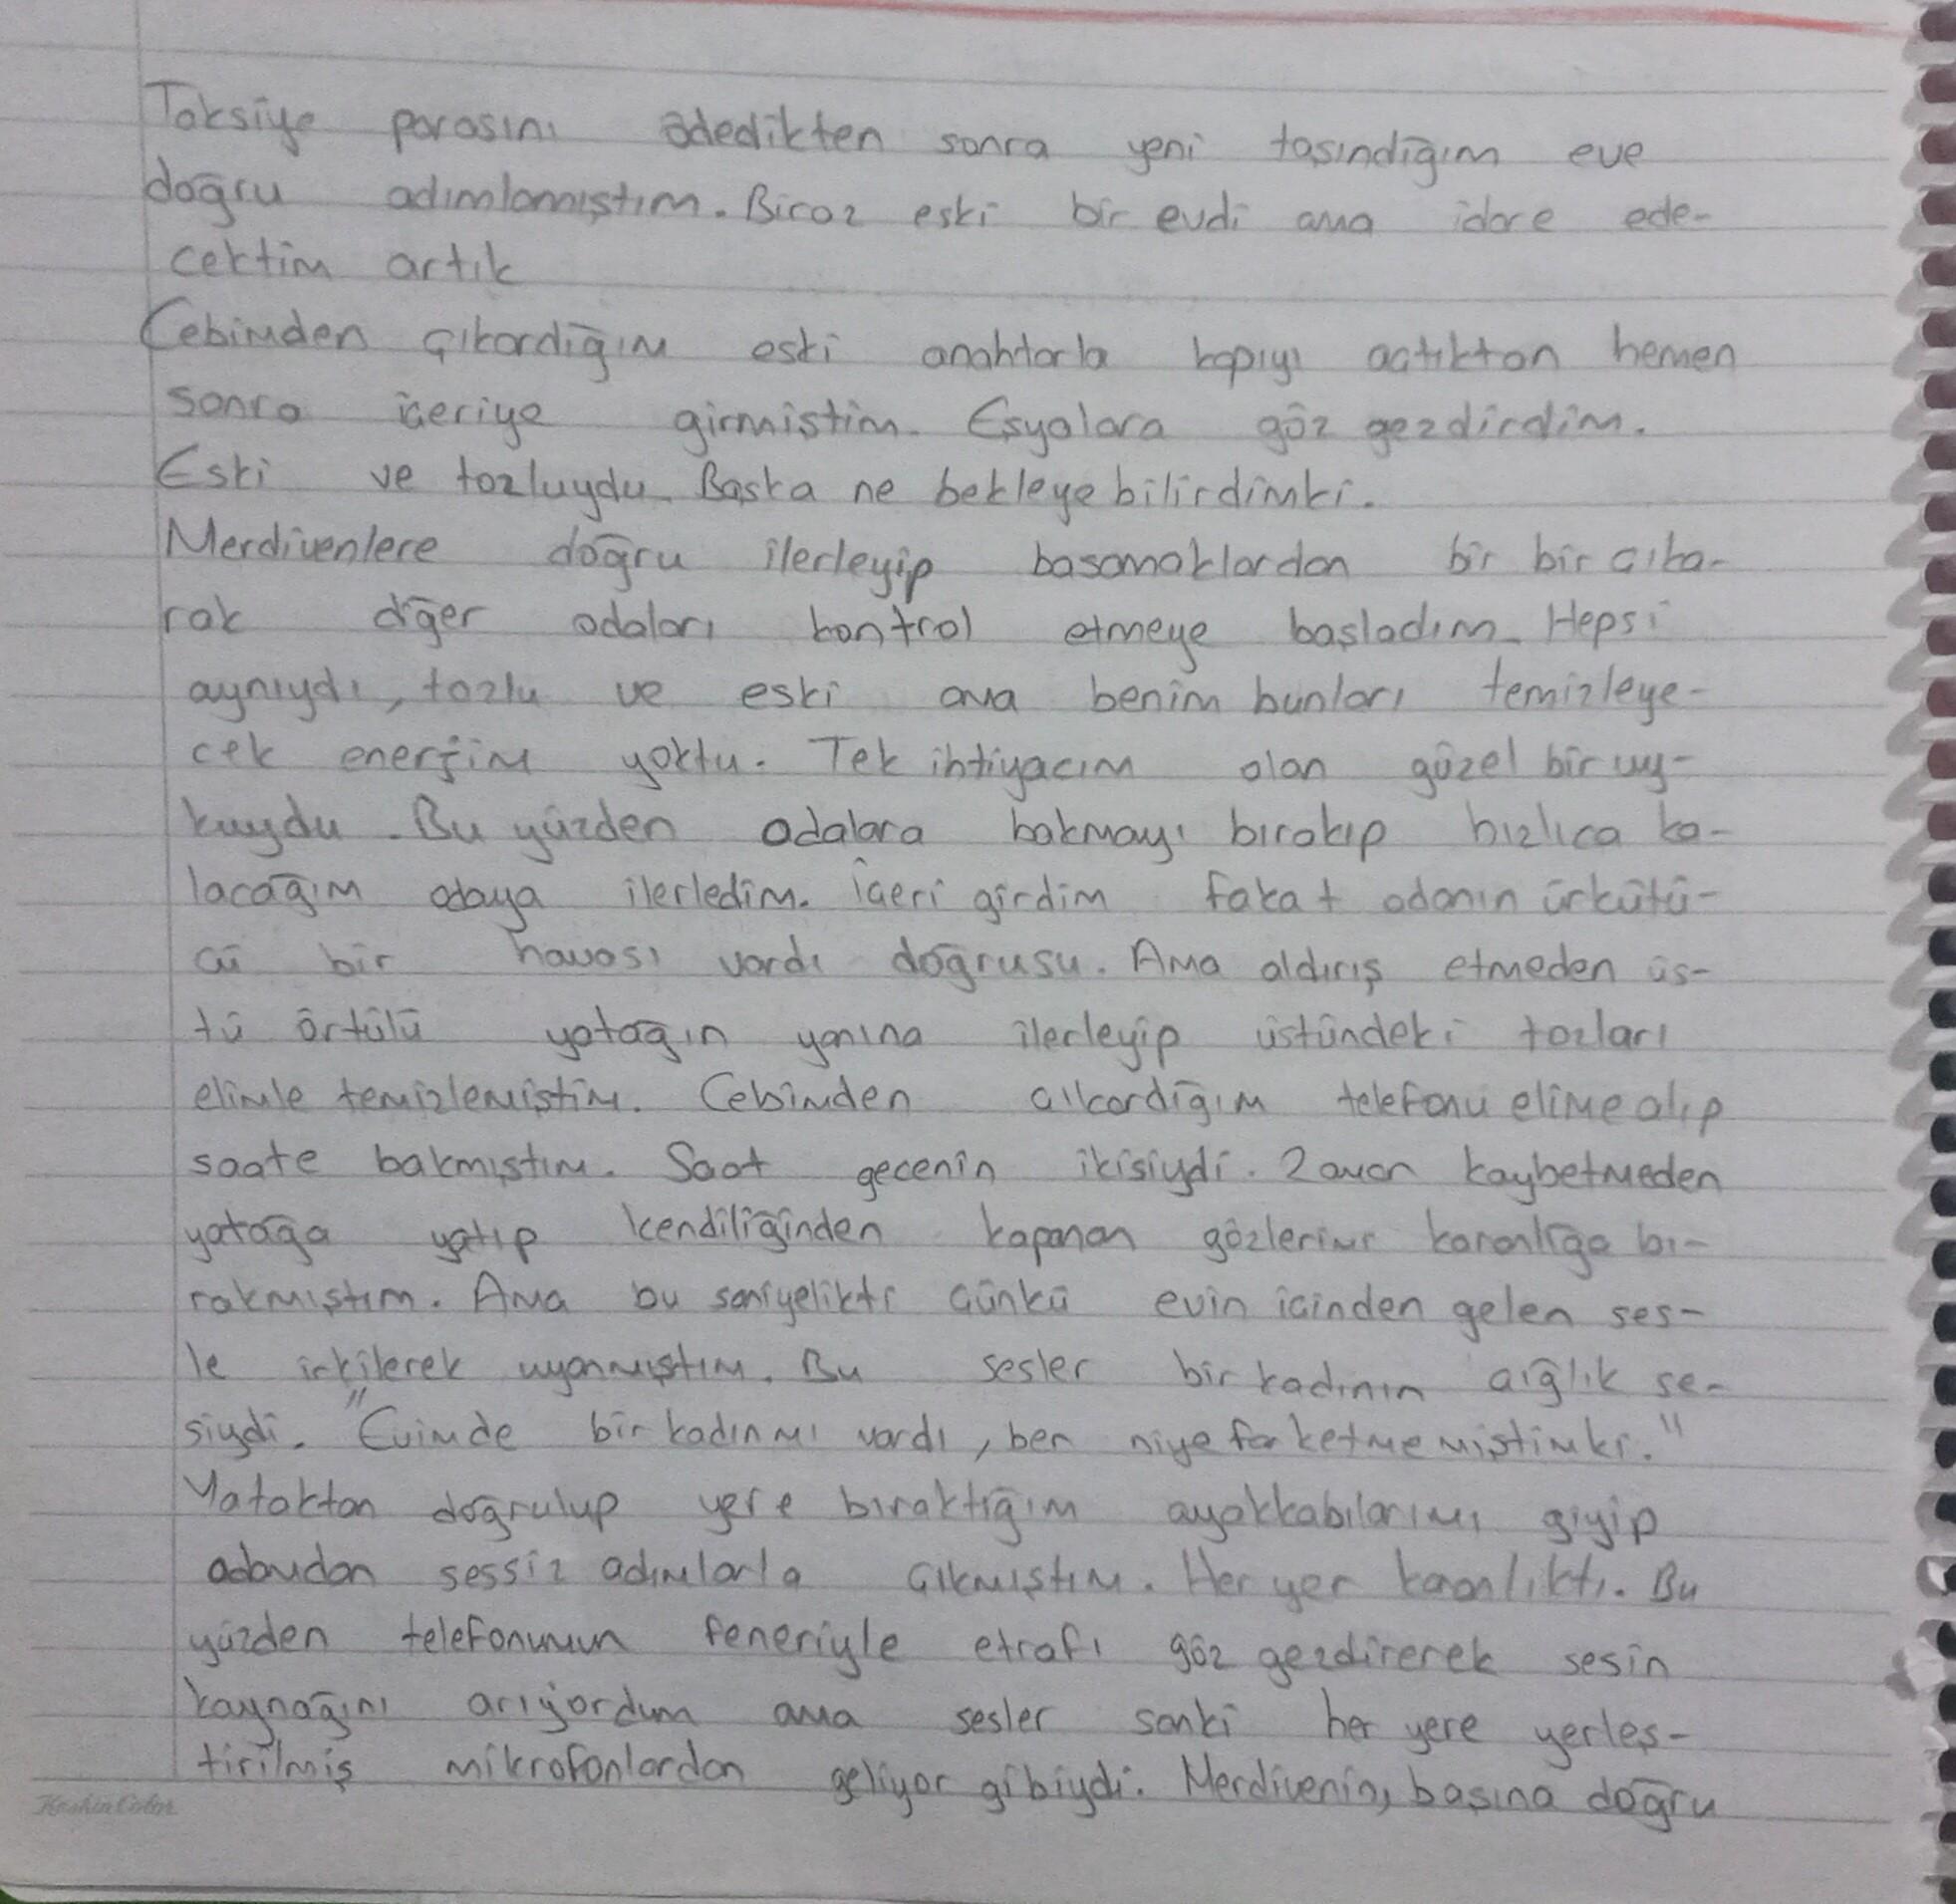 Taksiye parasını ödedikten sonra yeni taşındığım eve
doğru adımlamıştım. Biraz eski bir evdi ama idare ede-
cektim artık
Cebimden çıkardığım eski anahtarla kapıyı açtıktan hemen
sonra içeriye girmiştim. Eşyalara göz gezdirdim.
Eski ve tozluydu. Başka ne bekleyebilirdimki.
Merdivenlere doğru ilerleyip basamaklardan bir bir çıka-
rak diğer odaları kontrol etmeye başladım. Hepsi
aynıydı, tozlu ve eski ama benim bunları temizleye-
cek enerjim yoktu. Tek ihtiyacım olan güzel bir uy-
kuydu. Bu yüzden odalara bakmayı bırakıp hızlıca ka-
lacağım odaya ilerledim. İçeri girdim fakat odanın ürkütü-
cü bir havası vardı doğrusu. Ama aldırış etmeden üs-
tü örtülü yatağın yanına ilerleyip üstündeki tozları
elimle temizlemiştim. Cebimden çıkardığım telefonu elime alıp
saate bakmıştım. Saat gecenin ikisiydi. Zaman kaybetmeden
yatağa yatıp kendiliğinden kapanan gözlerimi karanlığa bı-
rakmıştım. Ama bu saniyelikti çünkü evin içinden gelen ses-
le irkilerek uyanmıştım. Bu sesler bir kadının çığlık se-
siydi. "Evimde bir kadınmı vardı, ben niye farketmemiştimki."
Yataktan doğrulup yere bıraktığım ayakkabılarımı giyip
odamdan sessiz adımlarla çıkmıştım. Her yer karanlıktı. Bu
yüzden telefonumun feneriyle etrafı göz gezdirerek sesin
kaynağını arıyordum ama sesler sanki her yere yerleş-
tirilmiş mikrofonlardan geliyor gibiydi. Merdivenin, başına doğru
KeskinColor